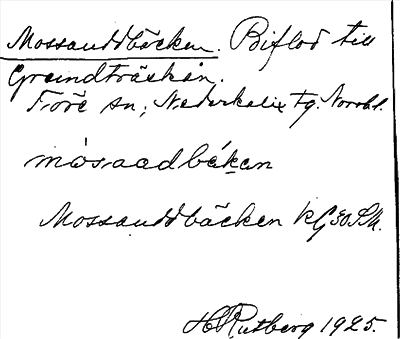 Mossauddbäcken. Biflod till
Gräindträsket.
Före ån; Nederkalix tg. Norrb.
mo̊saadbäkan
Mossauddbäcken kG30SM.
H Rutberg 1925.